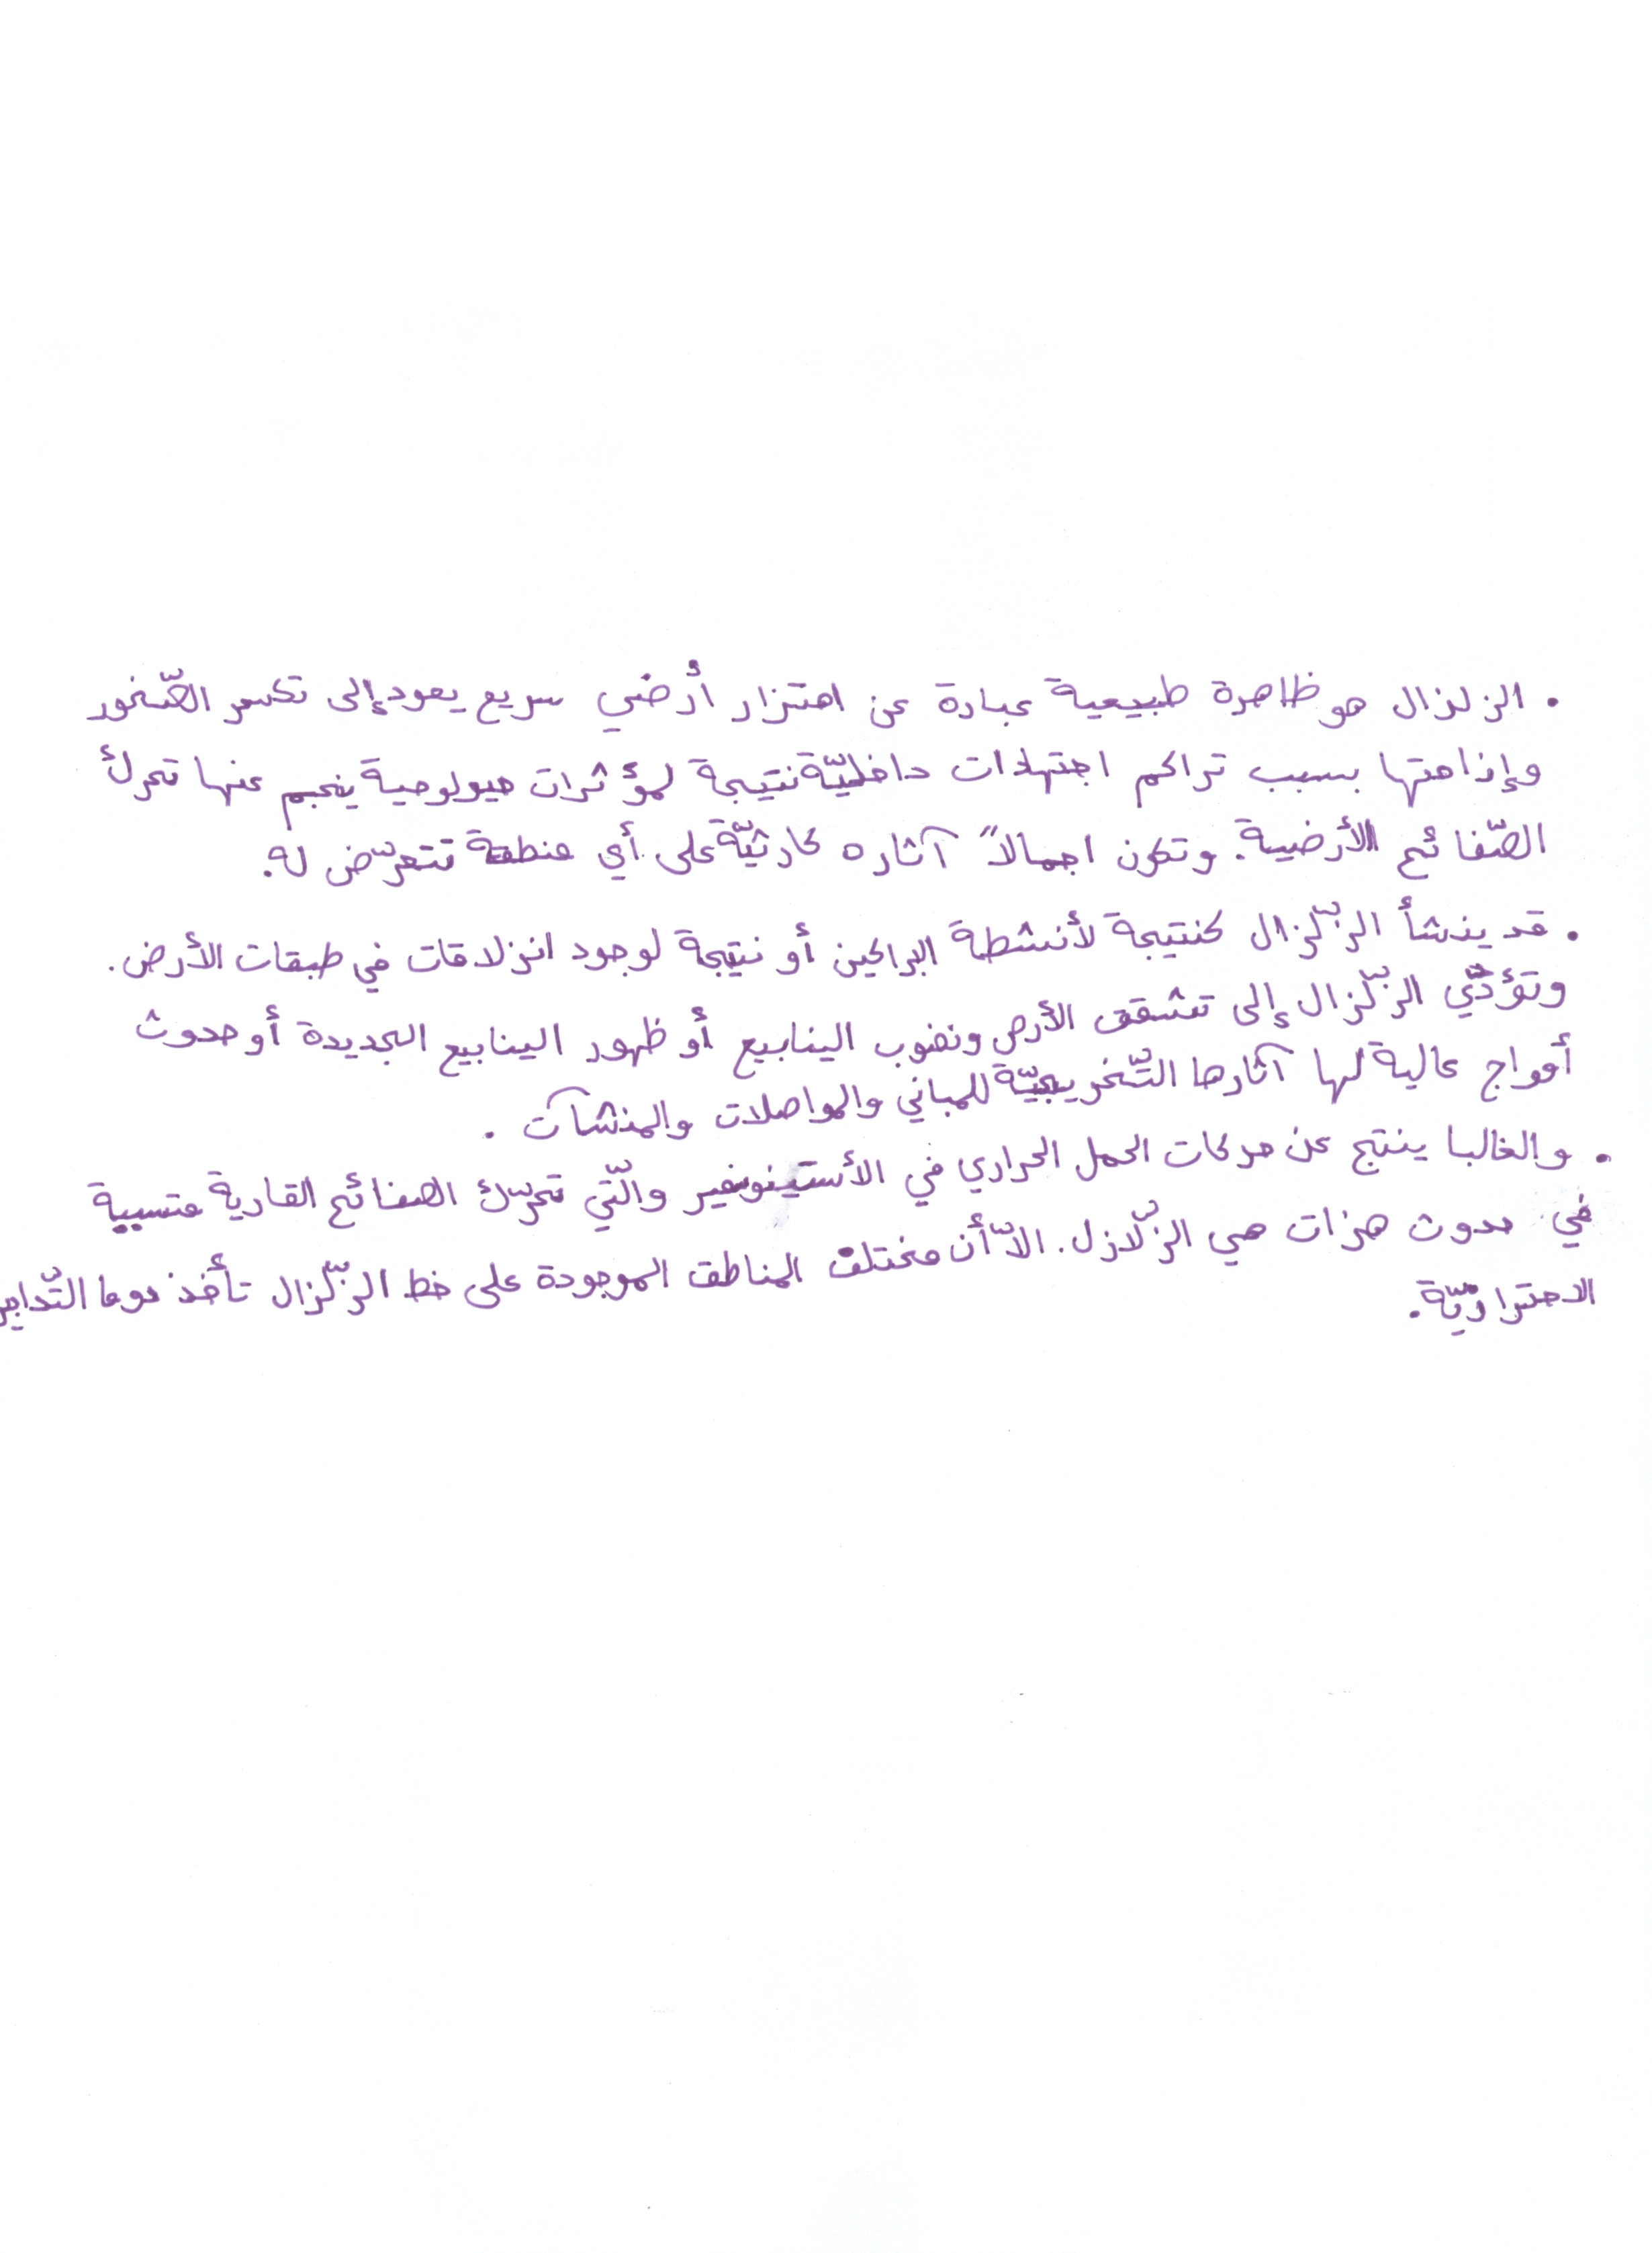 . الزلزال هو ظاهرة طبيعية عبارة عن اهتزار أرضي سريع يعود إلى تكسر الصّخور
وإذاحتها بسبب تراكم اجتهادات داخليّة نتيجة لمؤثرات جيولوجية ينجم عنها تحرك
الصّفائح الأرضية. وتكون اجمالاً آثاره كارثيّة على أي منطقة تتعرّض له.
. قد ينشأ الزّلزال كنتيجة لأنشطة البراكين أو نتيجة لوجود انزلاقات في طبقات الأرض.
وتؤدّي الزّلزال إلى تشقق الأرض ونضوب الينابيع أو ظهور الينابيع الجديدة أو حدوث
أمواج عالية لها آثارها التّخريبيّة للمباني والمواصلات والمنشآت .
. والغالبا ينتج عن حركات الحمل الحراري في الأستينوسفير والّتي تحرّك الصفائح القارية متسببة
في حدوث هزات هي الزّلازل. الاّ أن مختلف المناطق الموجودة على خط الزّلزال تأخذ دوما التّدابير
الاحترازيّة.